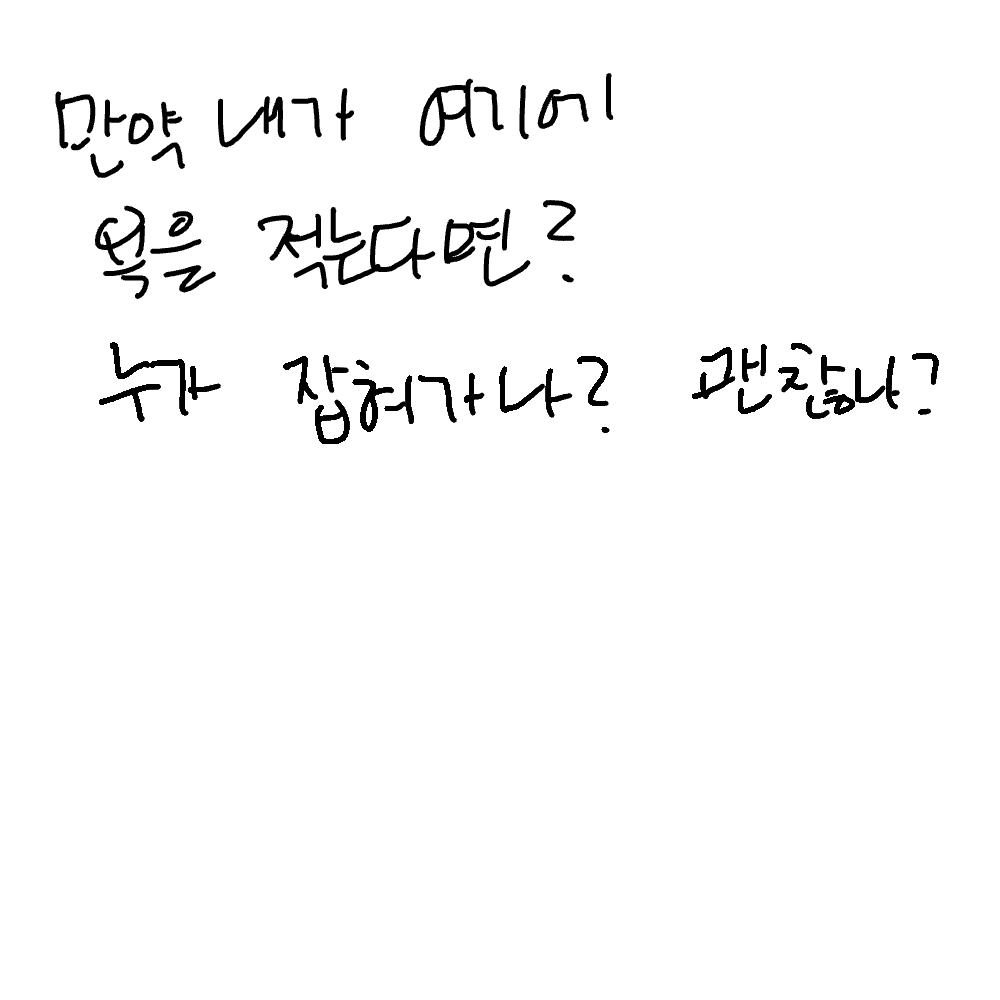 만약 내가 여기에
욕을 적는다면?
누가 잡혀가나? 괜찮나?